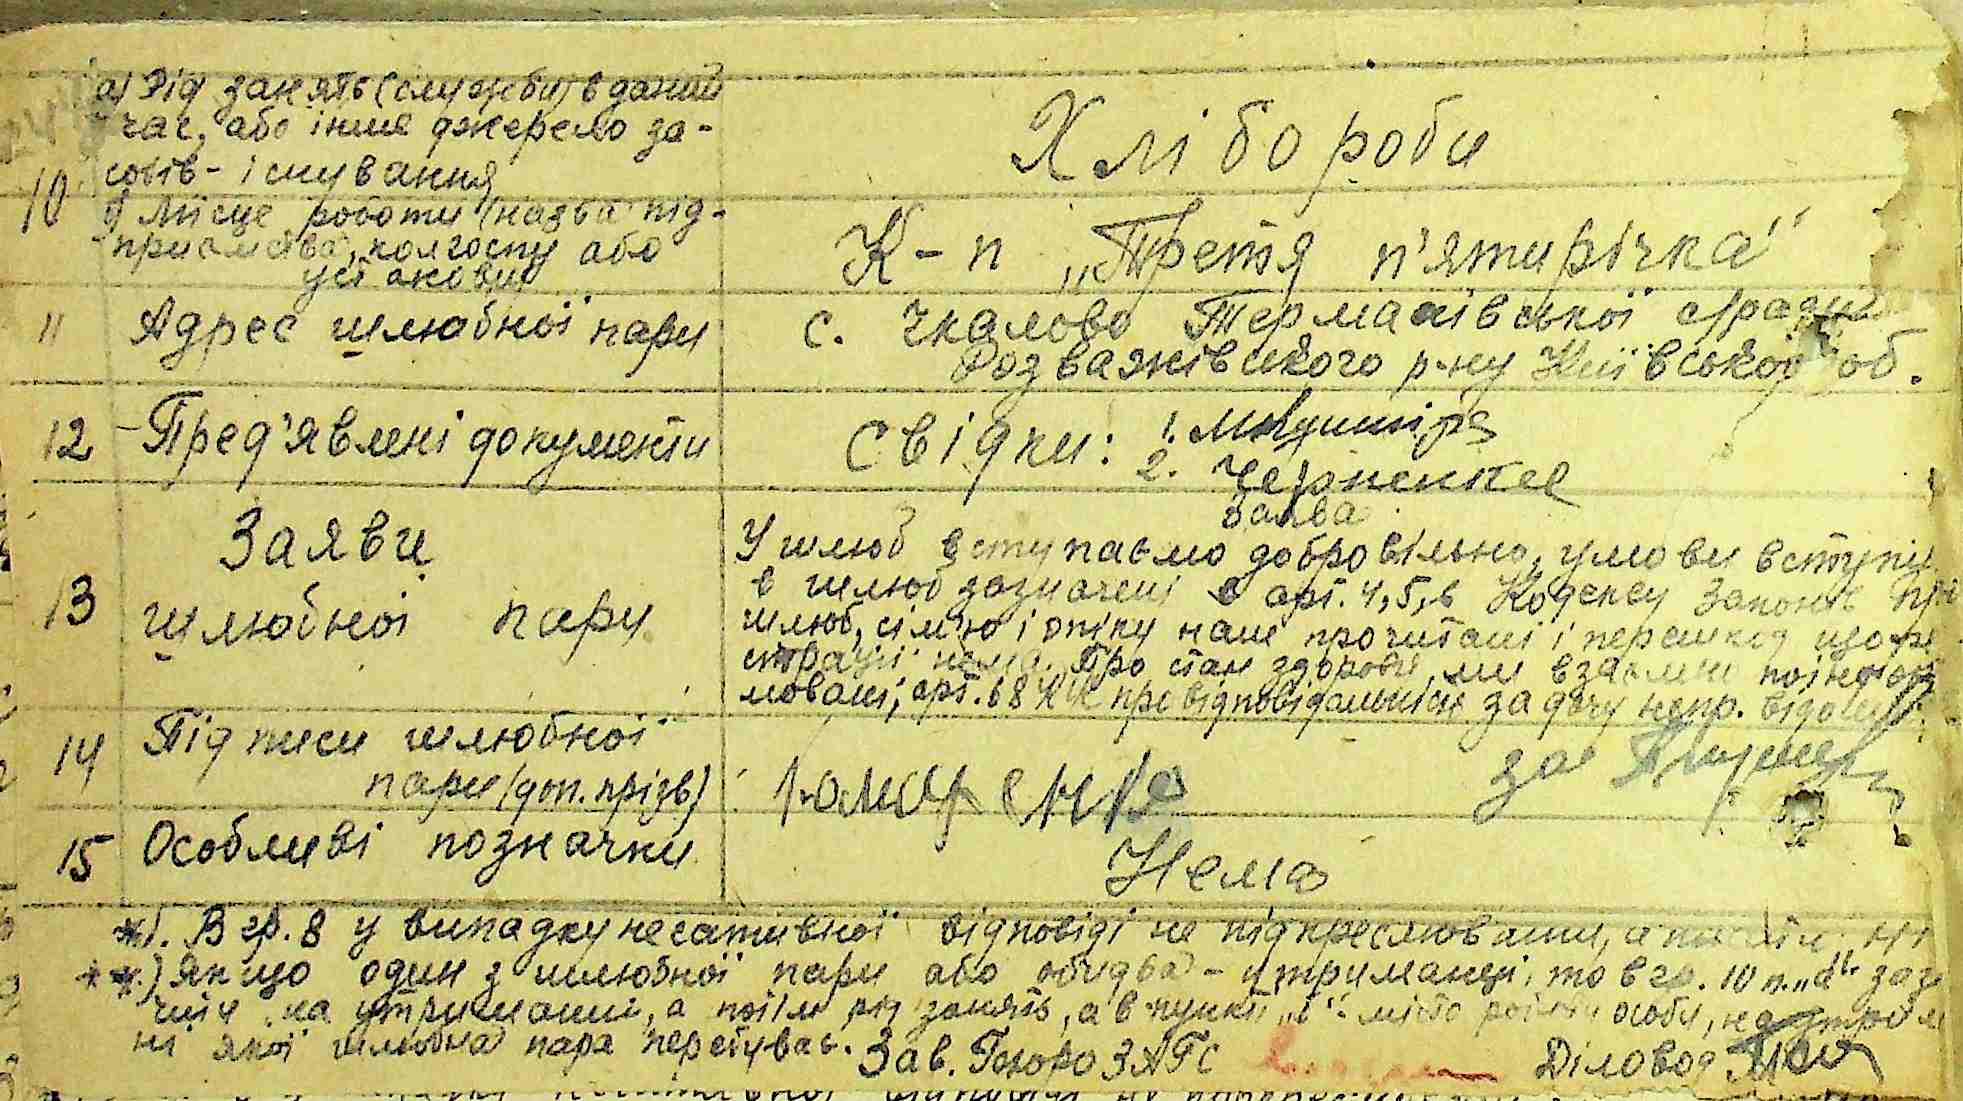 10
а) Рід занять (службу) в даний
час, або інше джерело за-
собів - існування
б) Місце роботи (назва під-
приємства, колгоспу або
установи
Хлібороби
К-п „Третя п'ятирічка"
11 Адрес шлюбної пари
с. Чкалово Термахівської с/ради
Розважівського р-ну Київської об.
12 Пред'явлені документи
свідки: 1.
2. Черненкее
Заява
13
Заяви
шлюбної пари
У шлюб вступаємо добровільно, умови вступу
в шлюб зазначені в арт. 4, 5, 6 Кодексу Законів про
шлюб, сім'ю і опіку нам прочитані і перешкод що ре
страції нема. Про стан здоров'я ми взаємно поінфор
мовані; арт. 68 КК про відповідальність за дачу непр. відом
14 Підписи шлюбної
пари (доп. прізв)
за
15 Особливі позначки
Нема
*). В гр. 8 у випадку негативної відповіді не підкреслювати, а писати „ні
**) Якщо один з шлюбної пари або обидва - утриманці, то в гр. 10 п. „а" заз
чити на утриманні, а потім рід занять, а в пункті „б" місто роботи особи, на утрим
ні якої шлюбна пара перебуває. Зав. Бюро ЗАГС Діловод